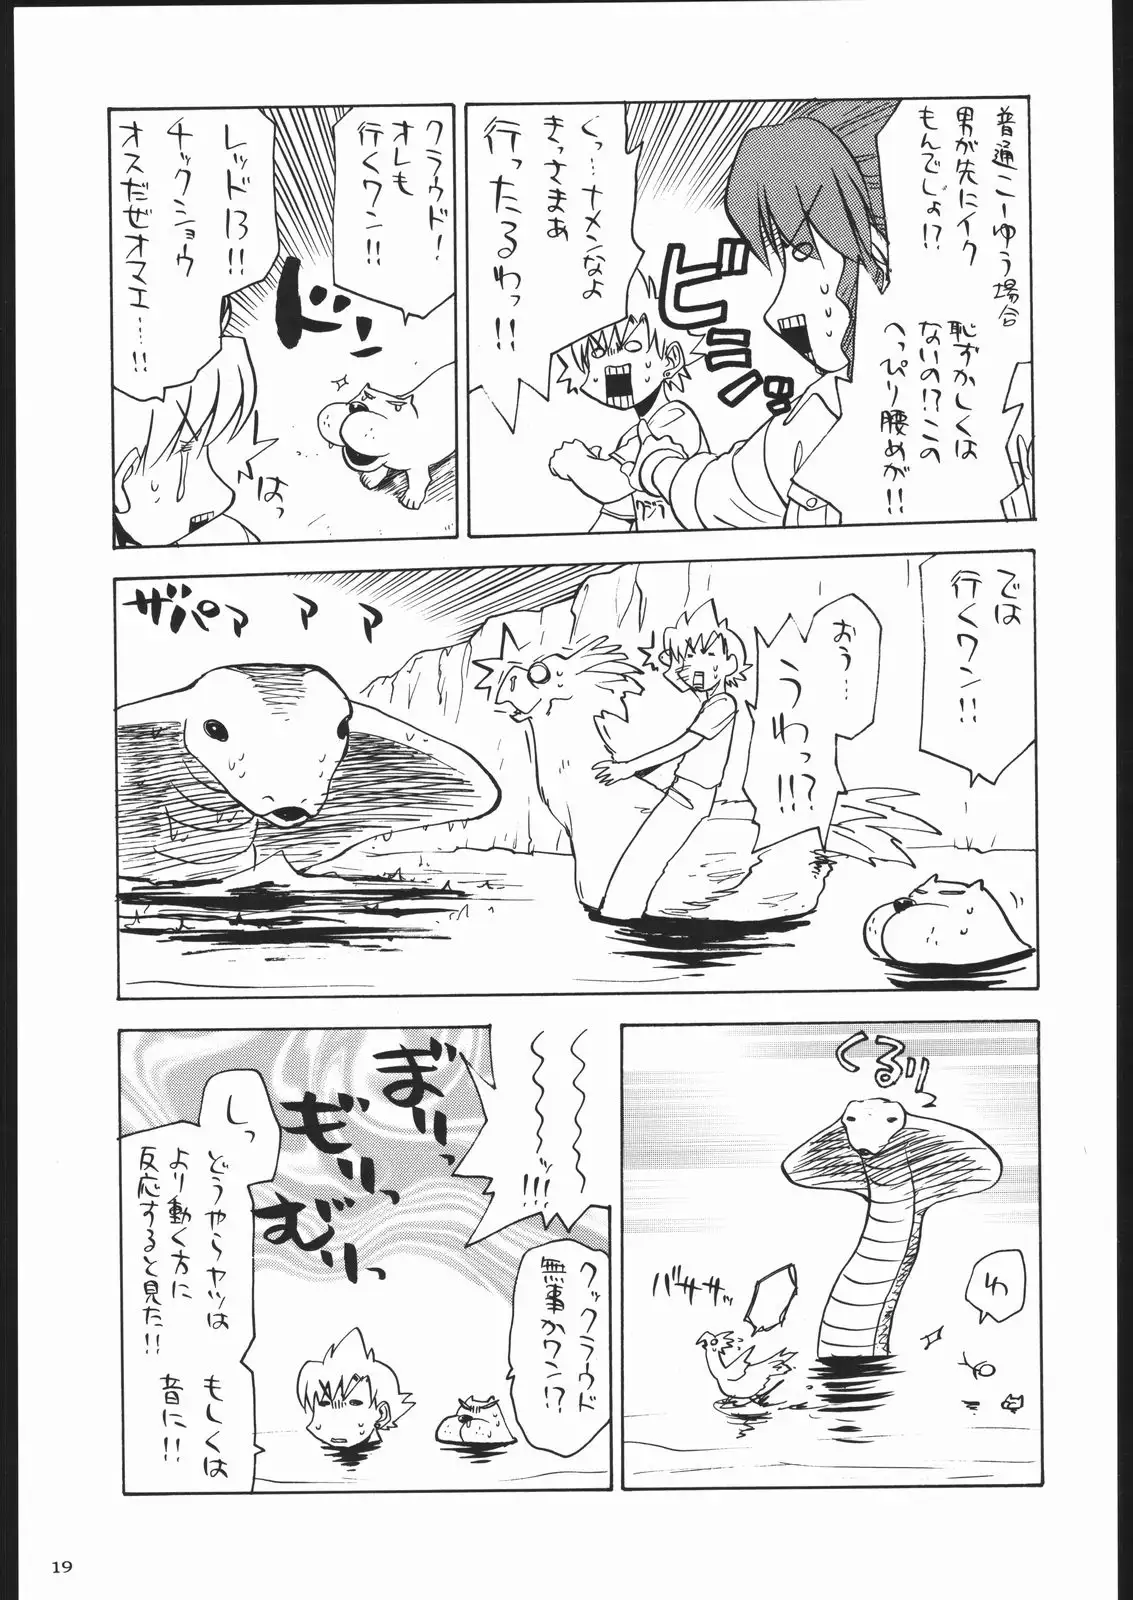 普通こーゆう場合
男が先にイク
もんでしょ!?
恥ずかしくは
ないの!?この
へっぴり腰めが!!
ビシッ
くっ…ナメンなよ
きっさまあ
行ったるわっ!!
クジラ
クラウド!
オレも
行くワン!!
ドン
レッド13!!
チックショウ
オスだぜオマエ…!!
はっ
では
行くワン!!
おぅ……
うわっ!!!?
ザパァ ァ ァ
くるりっ
わ
バササッ
〜〜〜〜ッ!!!
クックラウド
無事かワン!?
ぎりっ
もりっ
むりっ
しっ
どうやらヤツは
より動く方に
反応すると見た!!
もしくは
音に!!
19